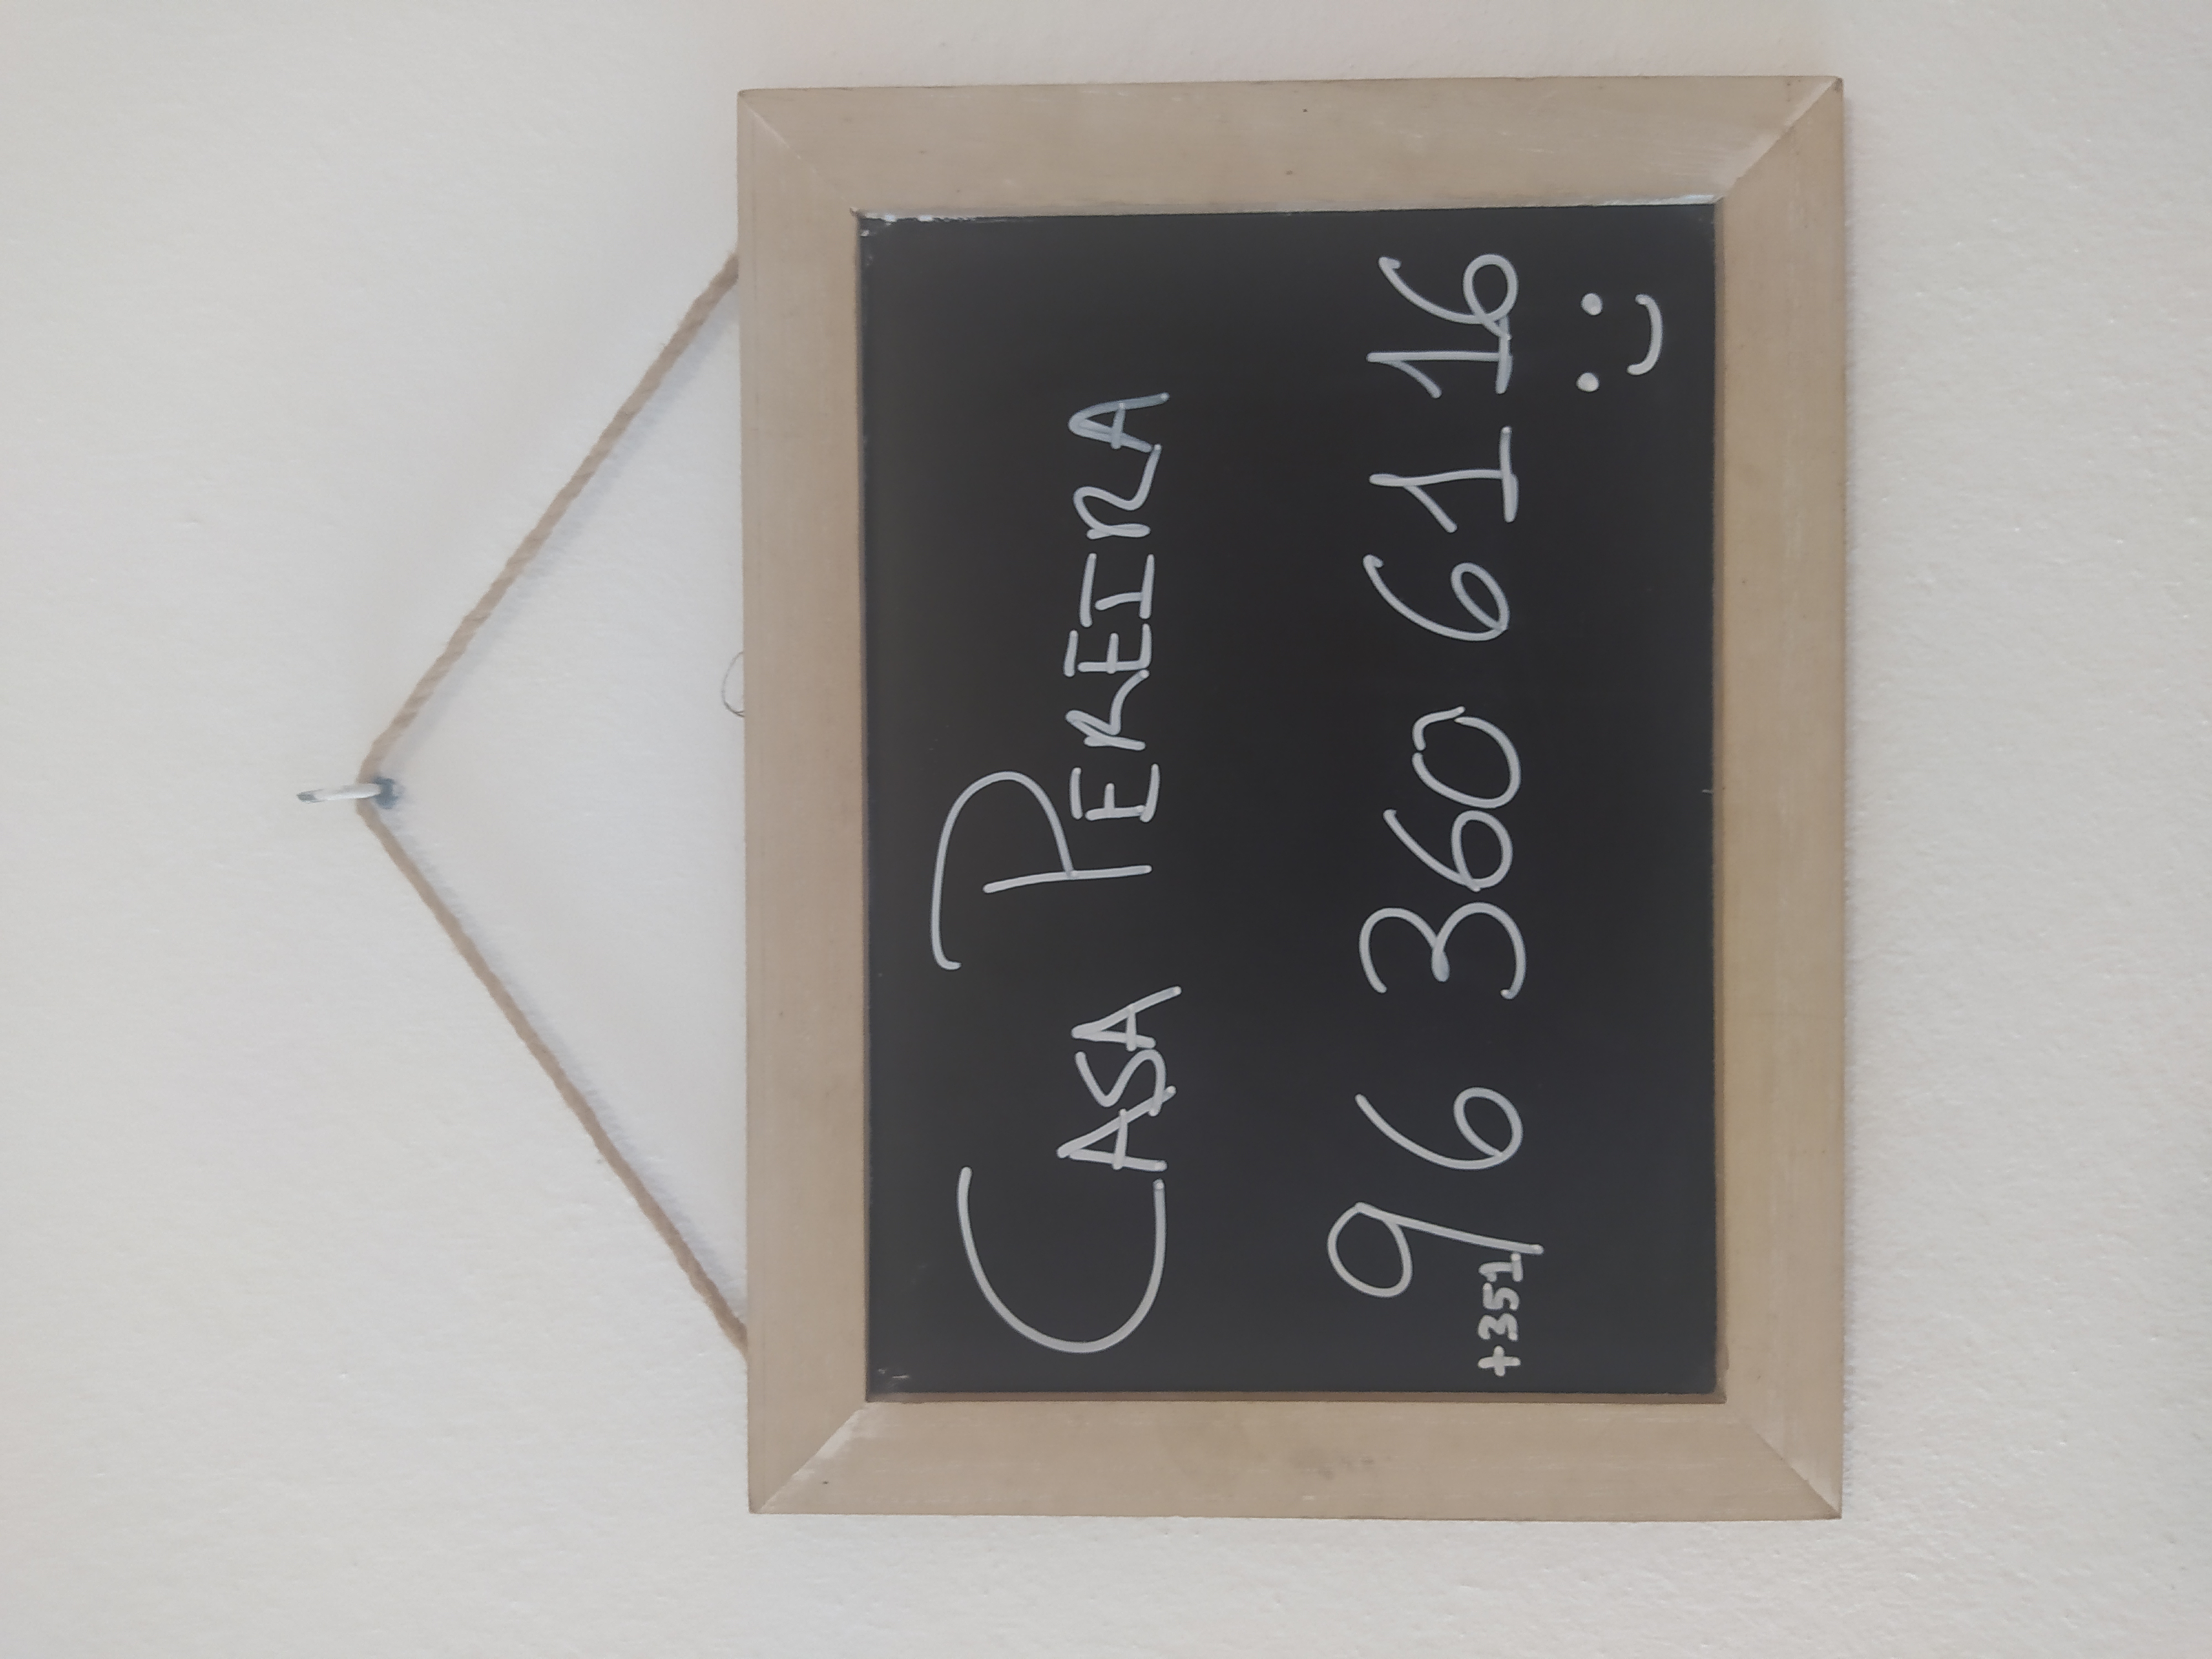 CASA PEREIRA
+351 96 360 61 16